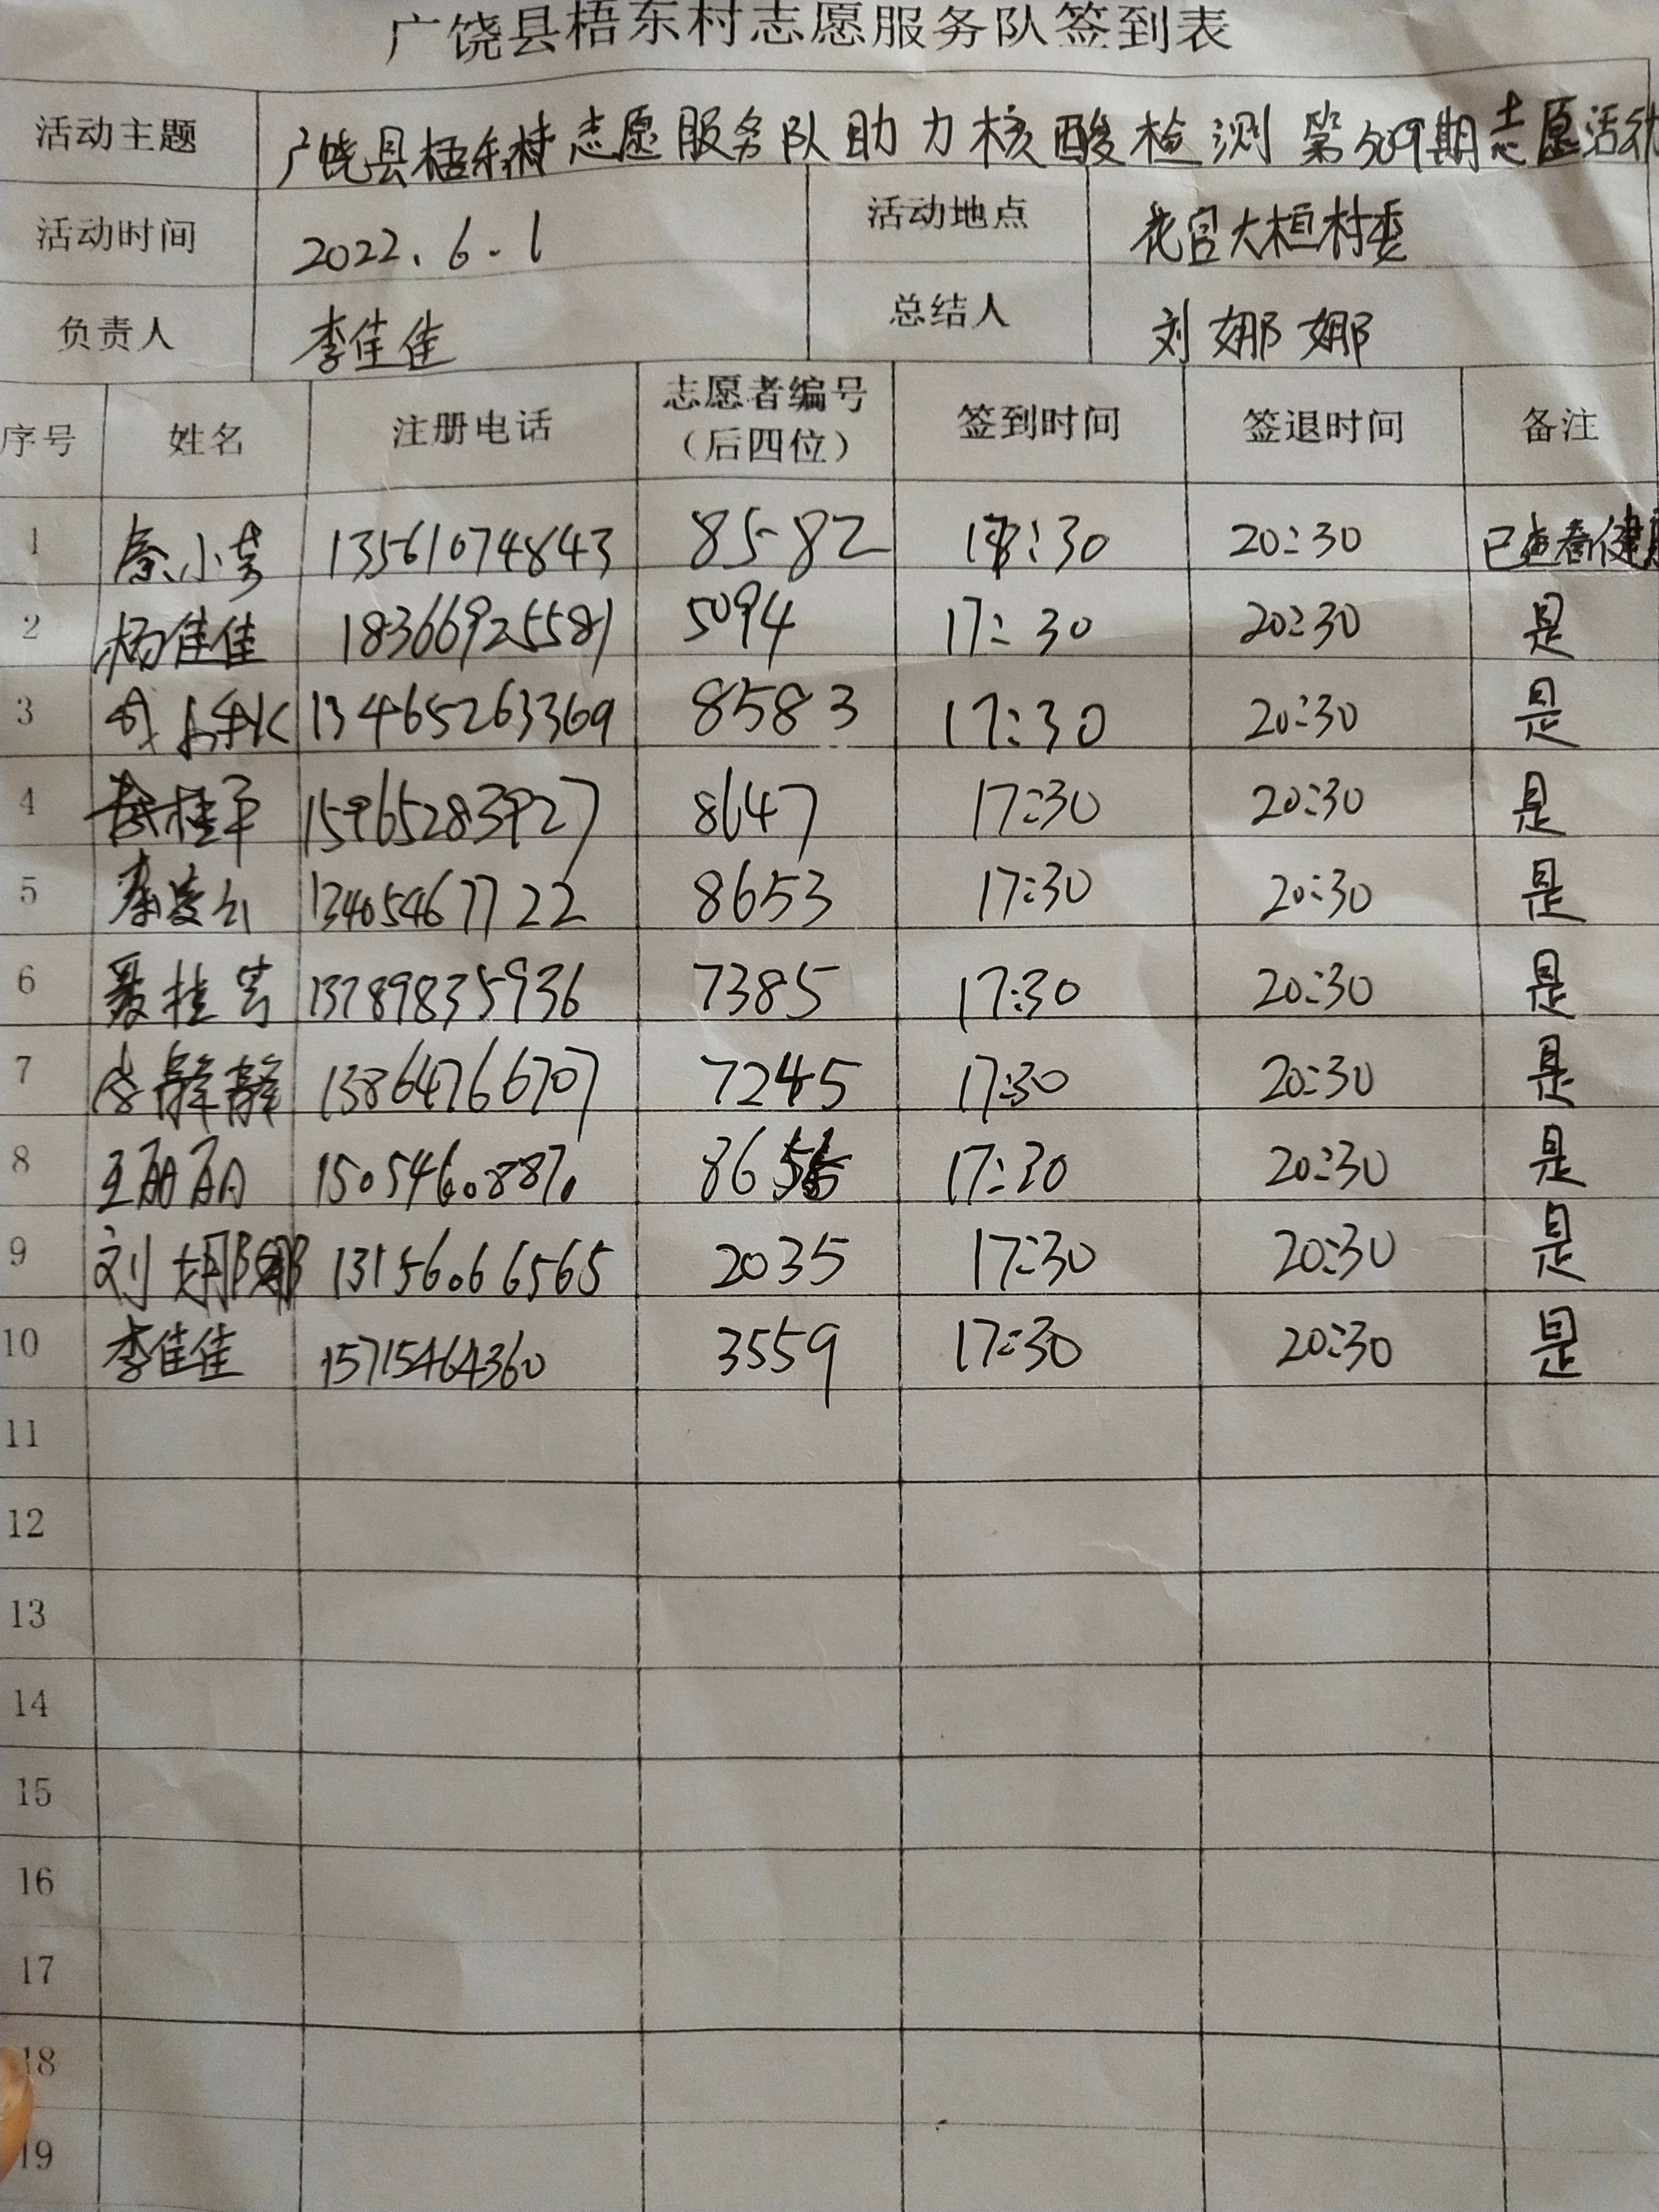 广饶县梧东村志愿服务队签到表
活动主题 广饶县梧东村志愿服务队助力核酸检测第509期志愿活动
活动时间 2022.6.1 活动地点 花官大桓村委
负责人 李佳佳 总结人 刘娜娜
序号 姓名 注册电话 志愿者编号（后四位） 签到时间 签退时间 备注
1 秦小芳 13561074843 8582 17:30 20:30 已查看健
2 杨佳佳 18366925581 5094 17:30 20:30 是
3 13465263369 8583 17:30 20:30 是
4 桂平 15965283927 8647 17:30 20:30 是
5 13405467722 8653 17:30 20:30 是
6 聂桂芳 13789835936 7385 17:30 20:30 是
7 13864766707 7245 17:30 20:30 是
8 王丽丽 15054608870 86 17:30 20:30 是
9 刘娜娜 13156066565 2035 17:30 20:30 是
10 李佳佳 15715464360 3559 17:30 20:30 是
11
12
13
14
15
16
17
18
19